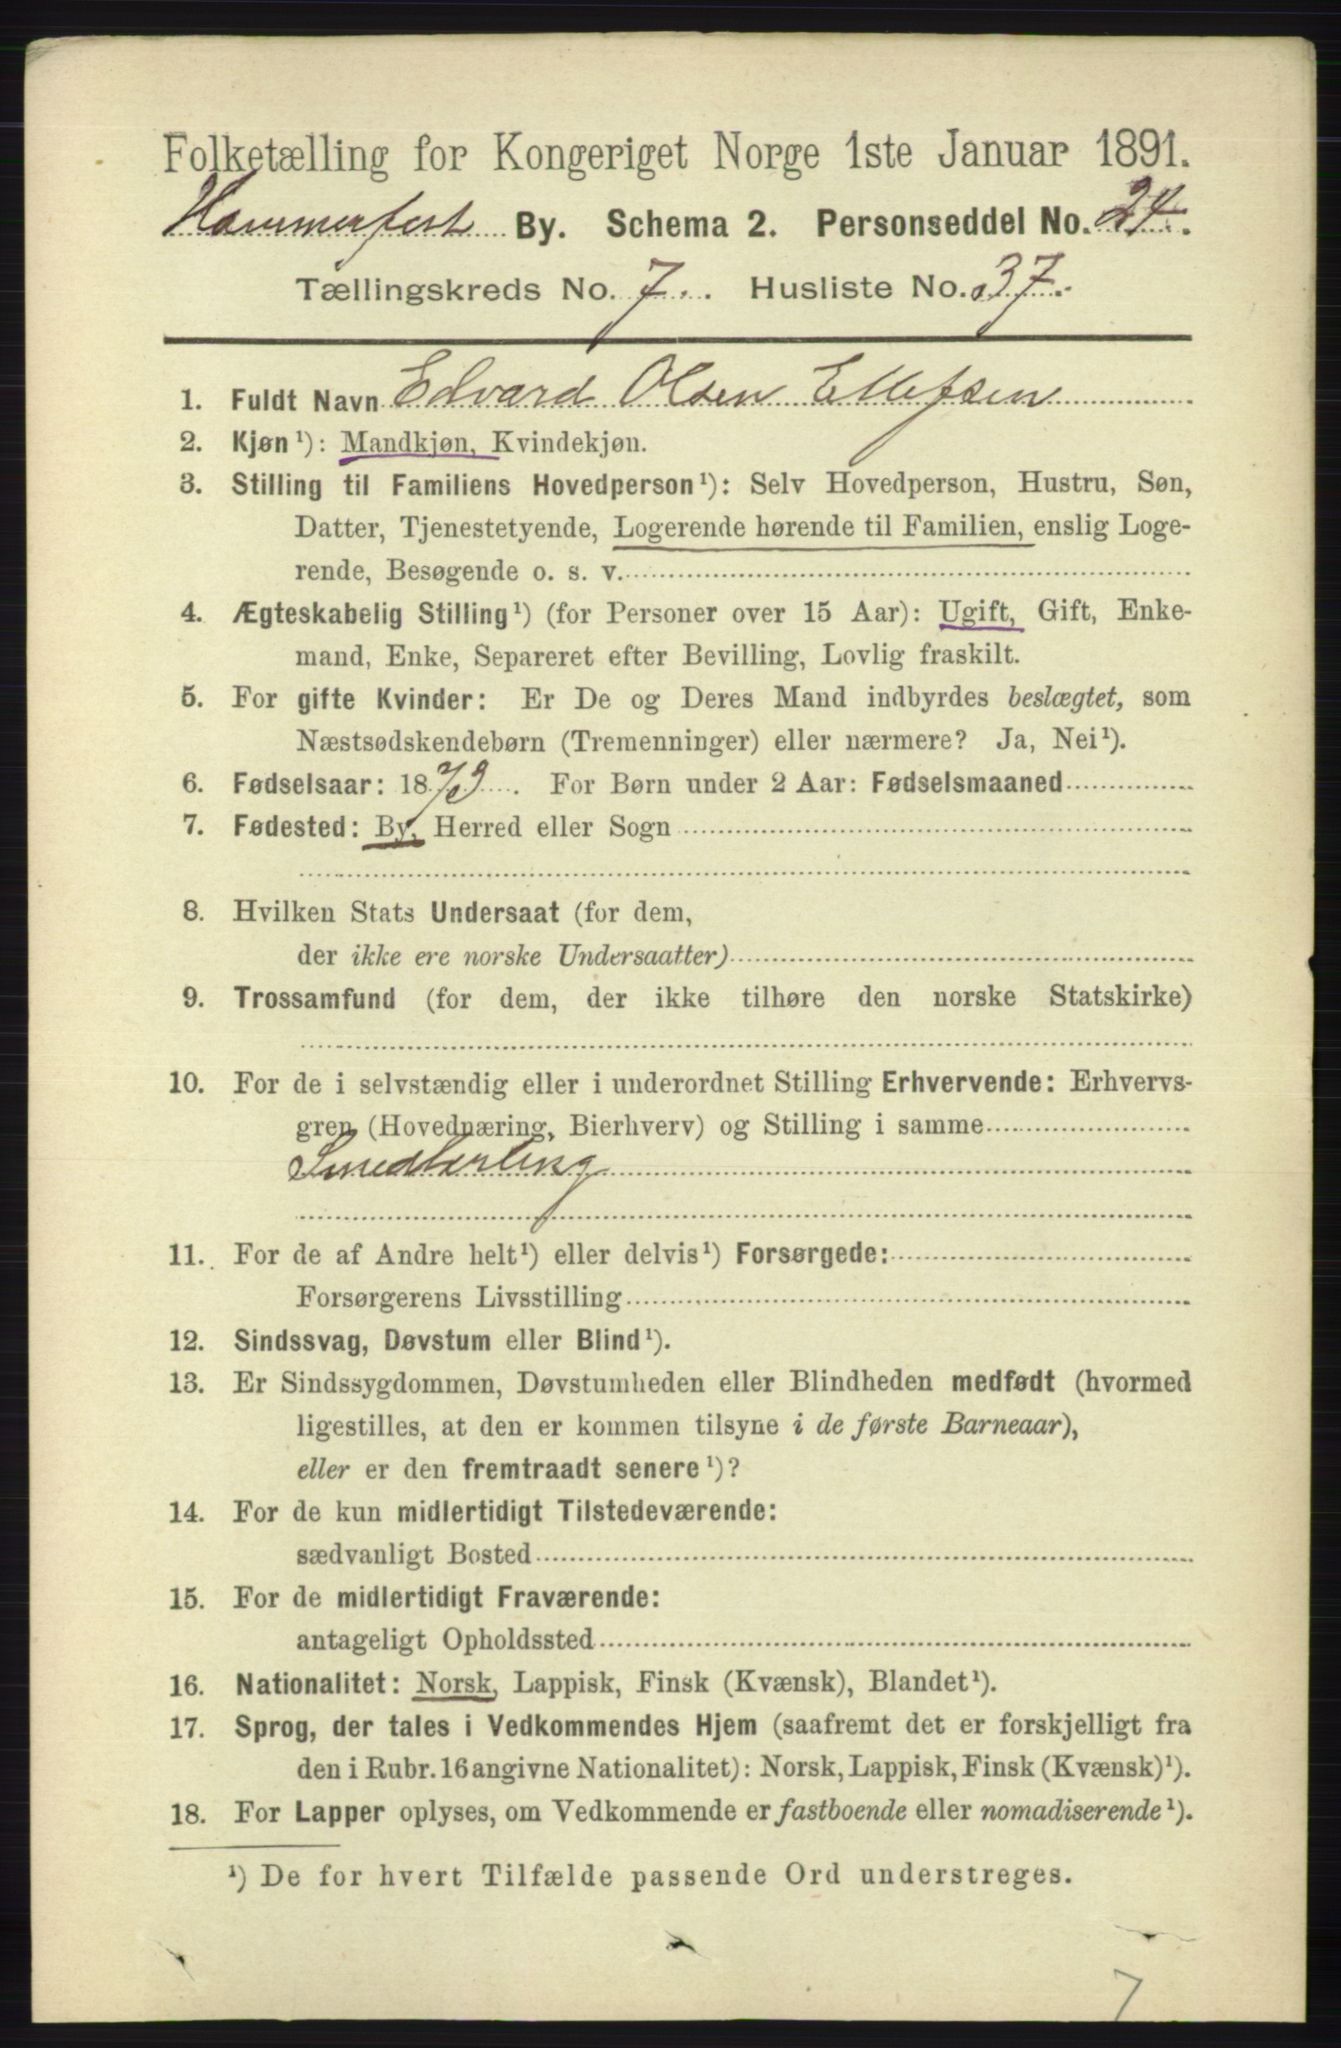 Folketælling for Kongeriget Norge 1ste Januar 1891.
Hammerfest By. Schema 2. Personseddel No. 24.
Tællingskreds No. 7. Husliste No. 37.
1. Fuldt Navn Edvard Olsen Ellefsen
2. Kjøn¹): Mandkjøn, Kvindekjøn.
3. Stilling til Familiens Hovedperson¹): Selv Hovedperson, Hustru, Søn,
Datter, Tjenestetyende, Logerende hørende til Familien, enslig Loge-
rende, Besøgende o. s. v.
4. Ægteskabelig Stilling¹) (for Personer over 15 Aar): Ugift, Gift, Enke-
mand, Enke, Separeret efter Bevilling, Lovlig fraskilt.
5. For gifte Kvinder: Er De og Deres Mand indbyrdes beslægtet, som
Næstsødskendebørn (Tremenninger) eller nærmere? Ja, Nei¹).
6. Fødselsaar: 1873. For Børn under 2 Aar: Fødselsmaaned
7. Fødested: By, Herred eller Sogn
8. Hvilken Stats Undersaat (for dem,
der ikke ere norske Undersaatter)
9. Trossamfund (for dem, der ikke tilhøre den norske Statskirke)
10. For de i selvstændig eller i underordnet Stilling Erhvervende: Erhvervs-
gren (Hovednæring, Bierhverv) og Stilling i samme
Smedlærling
11. For de af Andre helt¹) eller delvis¹) Forsørgede:
Forsørgerens Livsstilling
12. Sindssvag, Døvstum eller Blind¹).
13. Er Sindssygdommen, Døvstumheden eller Blindheden medfødt (hvormed
ligestilles, at den er kommen tilsyne i de første Barneaar),
eller er den fremtraadt senere¹)?
14. For de kun midlertidigt Tilstedeværende:
sædvanligt Bosted
15. For de midlertidigt Fraværende:
antageligt Opholdssted
16. Nationalitet: Norsk, Lappisk, Finsk (Kvænsk), Blandet¹).
17. Sprog, der tales i Vedkommendes Hjem (saafremt det er forskjelligt fra
den i Rubr. 16 angivne Nationalitet): Norsk, Lappisk, Finsk (Kvænsk)¹).
18. For Lapper oplyses, om Vedkommende er fastboende eller nomadiserende¹).
¹) De for hvert Tilfælde passende Ord understreges.
7